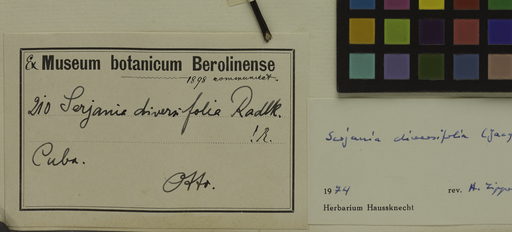 Ex Museum botanicum Berolinense
1898 communicat.
210 Serjania diversifolia Radlk.
! R.
Cuba.
Otto.
Serjania diversifolia (Jacq
1974 rev. H. Zippe
Herbarium Haussknecht